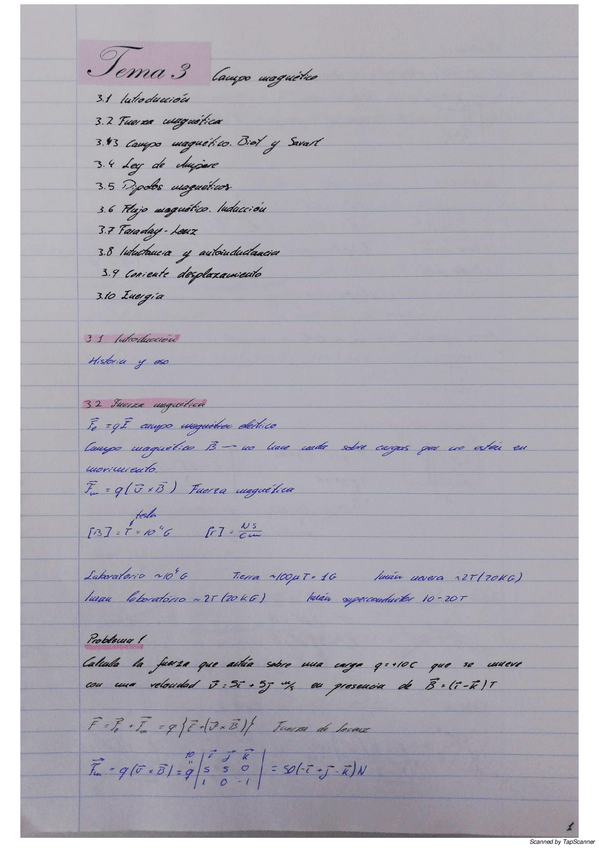 Tema 3 Campo magnético
3.1 Introducción
3.2 Fuerza magnética
3.3 Campo magnético. Biot y Savart
3.4 Ley de Ampère
3.5 Dipolos magnéticos
3.6 Flujo magnético. Inducción
3.7 Faraday-Lenz
3.8 Inductancia y autoinductancia
3.9 Corriente desplazamiento
3.10 Energía
3.1 Introducción
Historia y uso
3.2 Fuerza magnética
F⃗e = qE⃗ campo eléctrico
Campo magnético B⃗ → no hace nada sobre cargas que no estén en
movimiento.
F⃗m = q(v⃗ × B⃗) Fuerza magnética
tesla
[B] = T = 10⁴ G [T] = NS/Cm
Laboratorio ~10⁴ G Tierra ~100μT = 1G Imán nevera ~2T(20KG)
Iman laboratorio ~2T(20KG) Imán superconductor 10-20T
Problema 1
Calcula la fuerza que actúa sobre una carga q=+10C que se mueve
con una velocidad v⃗ = 5i⃗ + 5j⃗ m/s en presencia de B⃗ = (i⃗ - k⃗) T
F⃗ = F⃗e + F⃗m = q{E⃗ + (v⃗ × B⃗)} Fuerza de Lorenz
10 i⃗ j⃗ k⃗
F⃗m = q(v⃗ × B⃗) = q | 5 5 0 | = 50(-i⃗ + j⃗ - k⃗) N
1 0 -1
1
Scanned by TapScanner